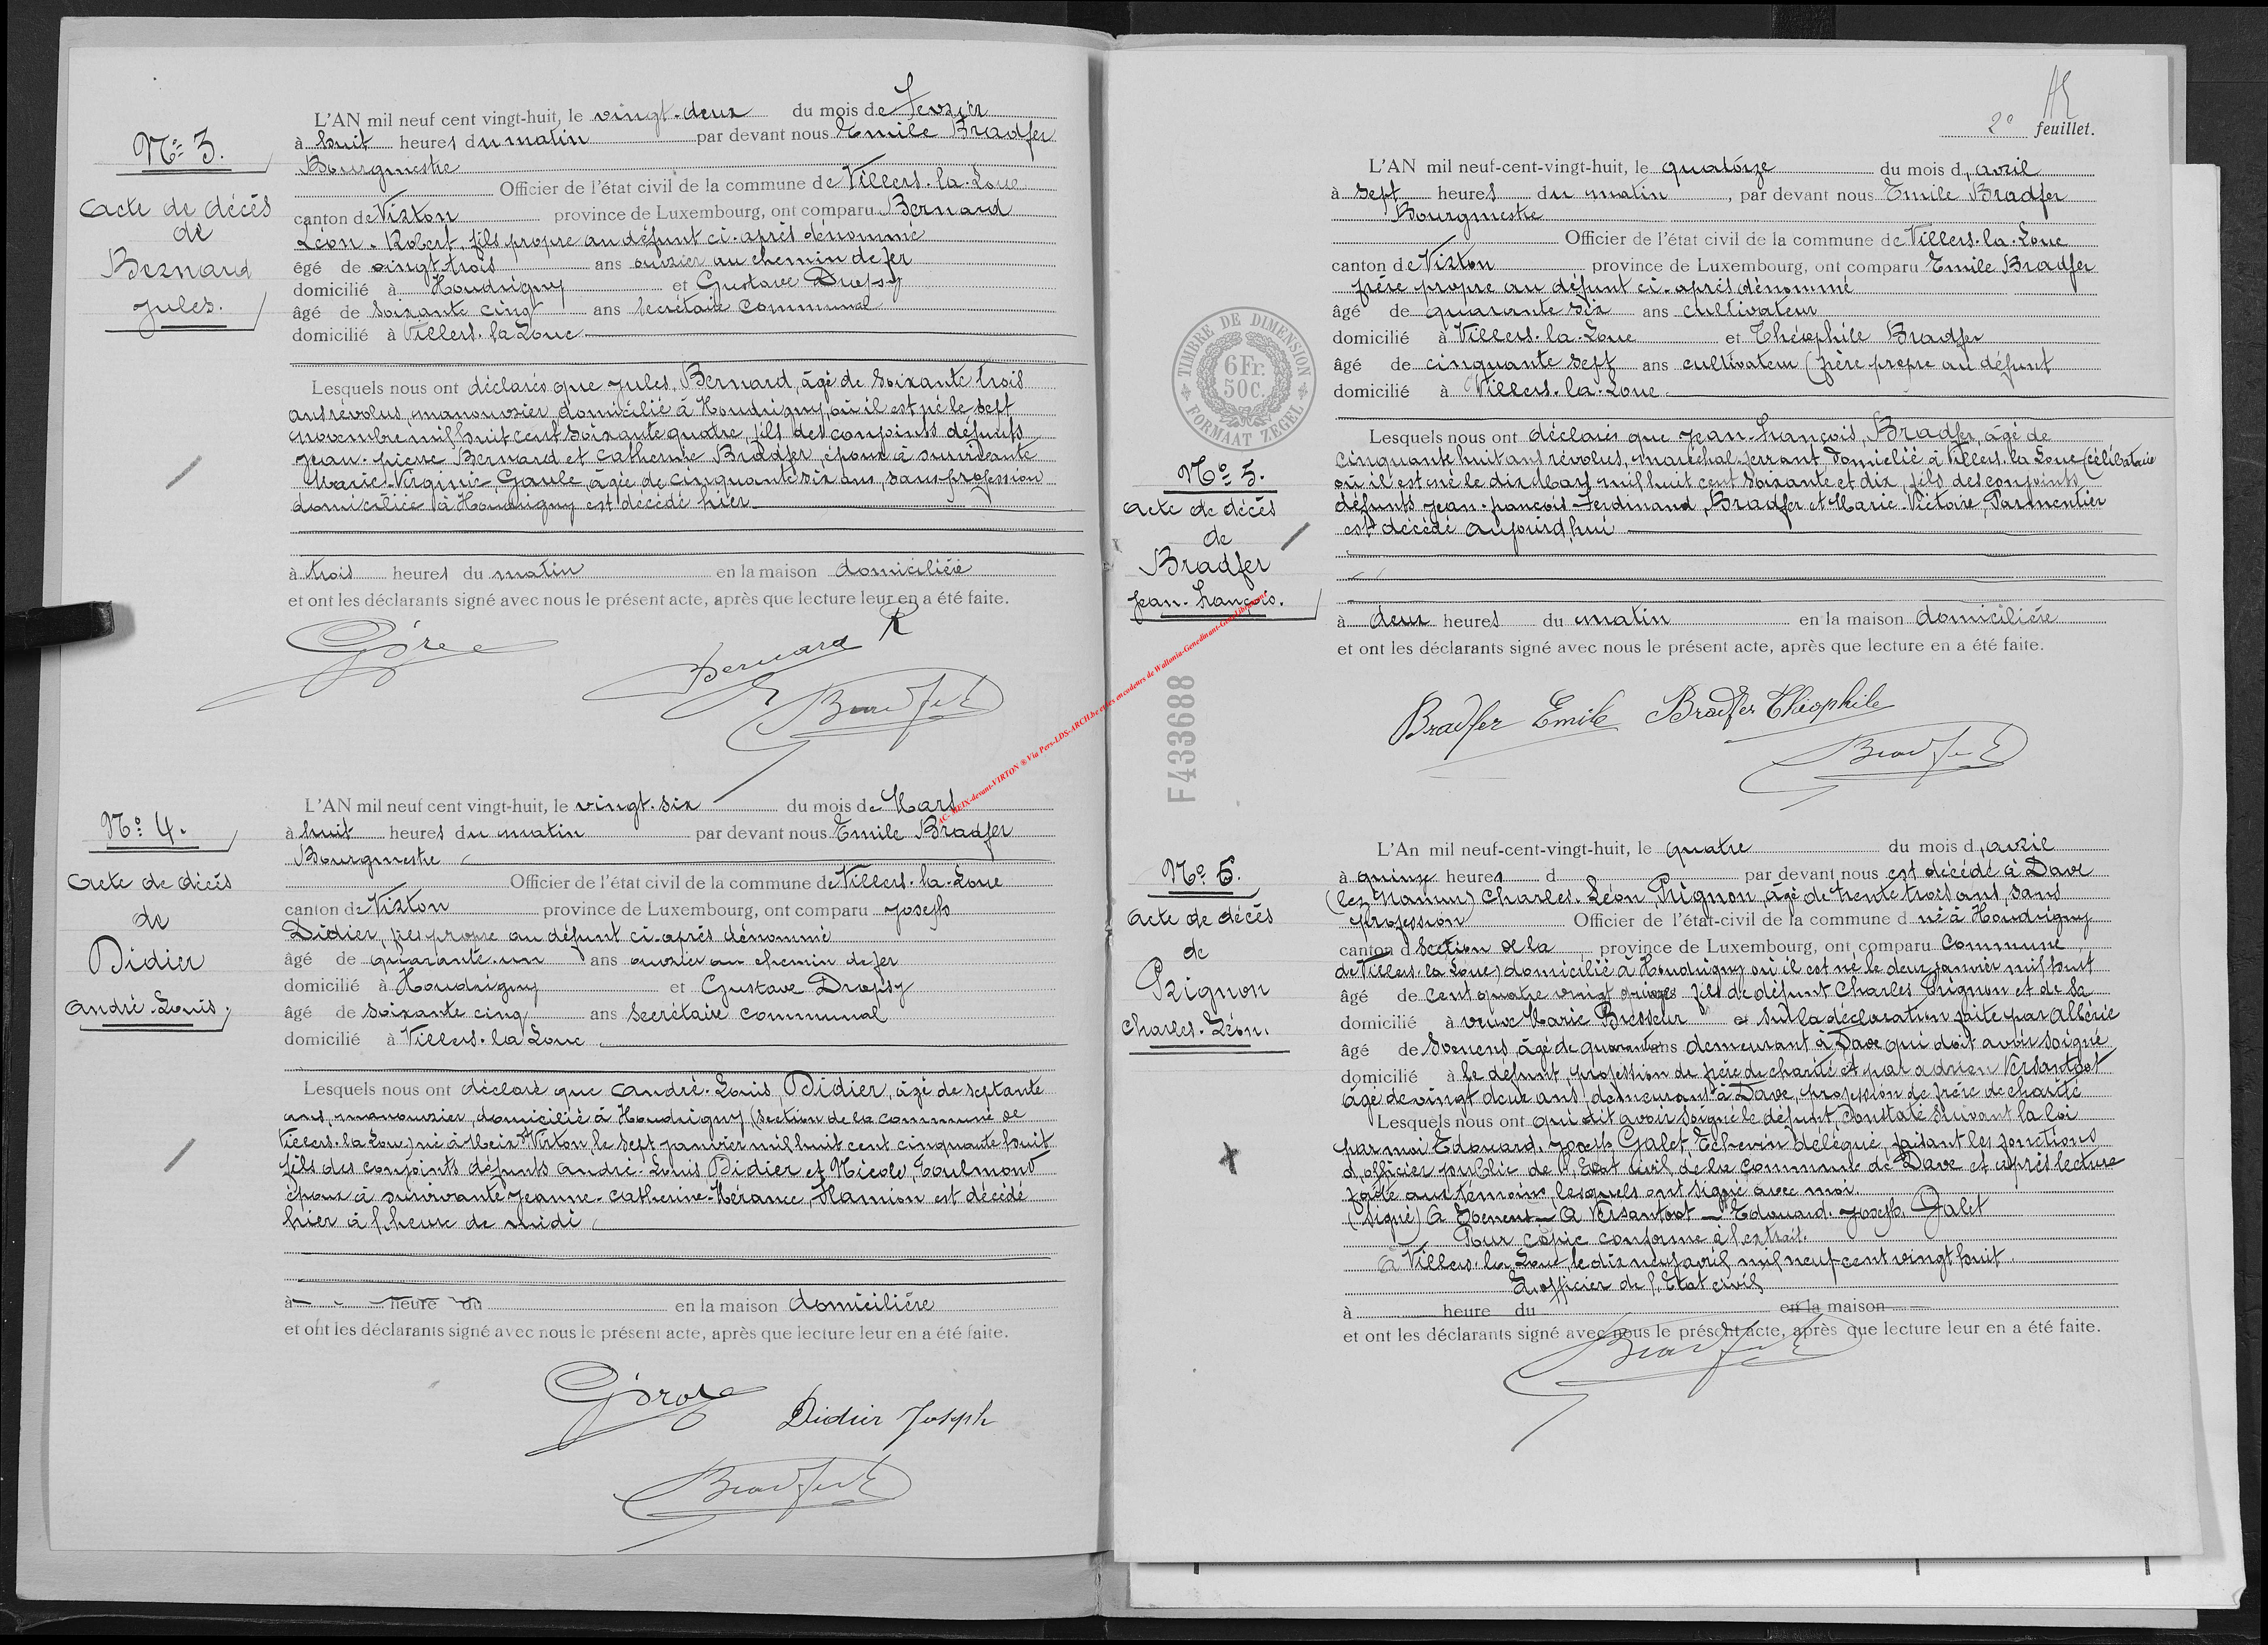 L'AN mil neuf cent vingt-huit, le vingt-deux du mois de Fevrier
à huit heures du matin par devant nous Emile Bradfer
Bourgmestre
Officier de l'état civil de la commune de Villers-la-Loue
canton de Virton province de Luxembourg, ont comparu Bernard
Léon-Robert, fils propre au défunt ci-après dénommé
êgé de vingt trois ans ouvrier au chemin de fer
domicilié à Houdrigny et Gustave Dropsy
âgé de soixante cinq ans Secrétaire Communal
domicilié à Villers-la-Loue
Nº 3.
Acte de décès
de
Bernard
Jules.
Lesquels nous ont déclarés que Jules, Bernard, âgé de soixante trois
ans révolus, manouvrier domicilié à Houdrigny, où il est né le sept
novembre mil huit cent soixante quatre, fils des conjoints défunts
Jean-pierre Bernard et Catherine Bradfer, époux à survivante
Marie-Virginie, Gaule, âgée de cinquante six ans, sans profession
domiciliée à Houdrigny est décédé hier
à trois heures du matin en la maison domiciliére
et ont les déclarants signé avec nous le présent acte, après que lecture leur en a été faite.
Bernard R
Bradfer E
L'AN mil neuf cent vingt-huit, le vingt-six du mois de Mars
à huit heures du matin par devant nous Emile Bradfer
Bourgmestre
Officier de l'état civil de la commune de Villers-la-Loue
canton de Virton province de Luxembourg, ont comparu Joseph
Didier, fils propre au défunt ci-après dénommé
âgé de quarante-un ans ouvrier au chemin de fer
domicilié à Houdrigny et Gustave Dropsy
âgé de soixante cinq ans Secrétaire communal
domicilié à Villers-la-Loue
Nº 4.
Acte de décès
de
Didier
André-Louis.
Lesquels nous ont déclaré que André-Louis, Didier, âgé de septante
ans, manouvrier, domicilié à Houdrigny, (section de la commune de
Villers-la-Loue) né à Meix dt Virton, le sept janvier mil huit cent cinquante huit
fils des conjoints défunts André-Louis Didier et Nicole, Goulmont
époux à survivante Jeanne-Catherine-Mérance, Hamion est décédé
hier à l'heure de midi
à heure du en la maison domiciliére
et ont les déclarants signé avec nous le présent acte, après que lecture leur en a été faite.
Didier Joseph
Bradfer E
AC-MEIX-devant-VIRTON ® Via Pers-LDS-ARCH.be et les encodeurs de Wallonia-Genedinant-GeneLibramont
2e feuillet.
L'AN mil neuf-cent-vingt-huit, le quatorze du mois d'avril
à sept heures du matin, par devant nous Emile Bradfer
Bourgmestre
Officier de l'état civil de la commune de Villers-la-Loue
canton de Virton province de Luxembourg, ont comparu Emile Bradfer
frère propre au défunt ci-après dénommé
âgé de quarante six ans cultivateur
domicilié à Villers-la-Loue et Théophile Bradfer
âgé de cinquante sept ans cultivateur (frère propre au défunt
domicilié à Villers-la-Loue
TIMBRE DE DIMENSION
6Fr. 50C.
FORMAAT ZEGEL
Nº 5.
Acte de décès
de
Bradfer
Jean-François.
F433688
Lesquels nous ont déclarés que Jean-François, Bradfer, âgé de
cinquante huit ans révolus, maréchal-ferrant, domicilié à Villers-la-Loue (célibataire
où il est né le dix Mars mil huit cent soixante et dix, fils des conjoints
défunts Jean-françois-Ferdinand, Bradfer et Marie-Victoire, Parmentier
est décédé aujourd'hui
à deux heures du matin en la maison domiciliére
et ont les déclarants signé avec nous le présent acte, après que lecture en a été faite.
Bradfer Emile Bradfer Théophile
Bradfer E
L'An mil neuf-cent-vingt-huit, le quatre du mois d'avril
à quinze heures d par devant nous est décédé à Dave
(lez Namur) Charles-Léon, Prignon, âgé de trente trois ans, sans
profession Officier de l'état-civil de la commune d né à Houdrigny
canton d section de la province de Luxembourg, ont comparu Commune
de Villers-la-Loue) domicilié à Houdrigny où il est né le deux janvier mil huit
âgé de cent quatre vingt quinze fils de défunt Charles Prignon et de sa
domicilié à veuve Marie Bresseur et sur la déclaration faite par Albéric
âgé de Soenens, âgé de quarante ans demeurant à Dave qui doit avoir soigné
domicilié à le défunt, profession de frère de charité et par Adrien Versantoot
âgé de vingt deux ans, demeurant à Dave, profession de frère de charité
Lesquels nous ont qui dit avoir soigné le défunt, Constaté suivant la loi
par moi Edouard, Joseph Galet, Echevin délégué, faisant les fonctions
d'officier public de l'Etat civil de la Commune de Dave et après lecture
faite aux témoins, lesquels ont signé avec moi.
(signé) A Soenens - A Versantoot - Edouard, Joseph Galet
Pour copie conforme à l'extrait.
A Villers-la-Loue, le dix neuf avril mil neuf-cent vingt huit.
L'officier de l'Etat civil
à heure du en la maison
et ont les déclarants signé avec nous le présent acte, après que lecture leur en a été faite.
Bradfer E
Nº 6.
Acte de décès
de
Prignon
Charles-Léon.